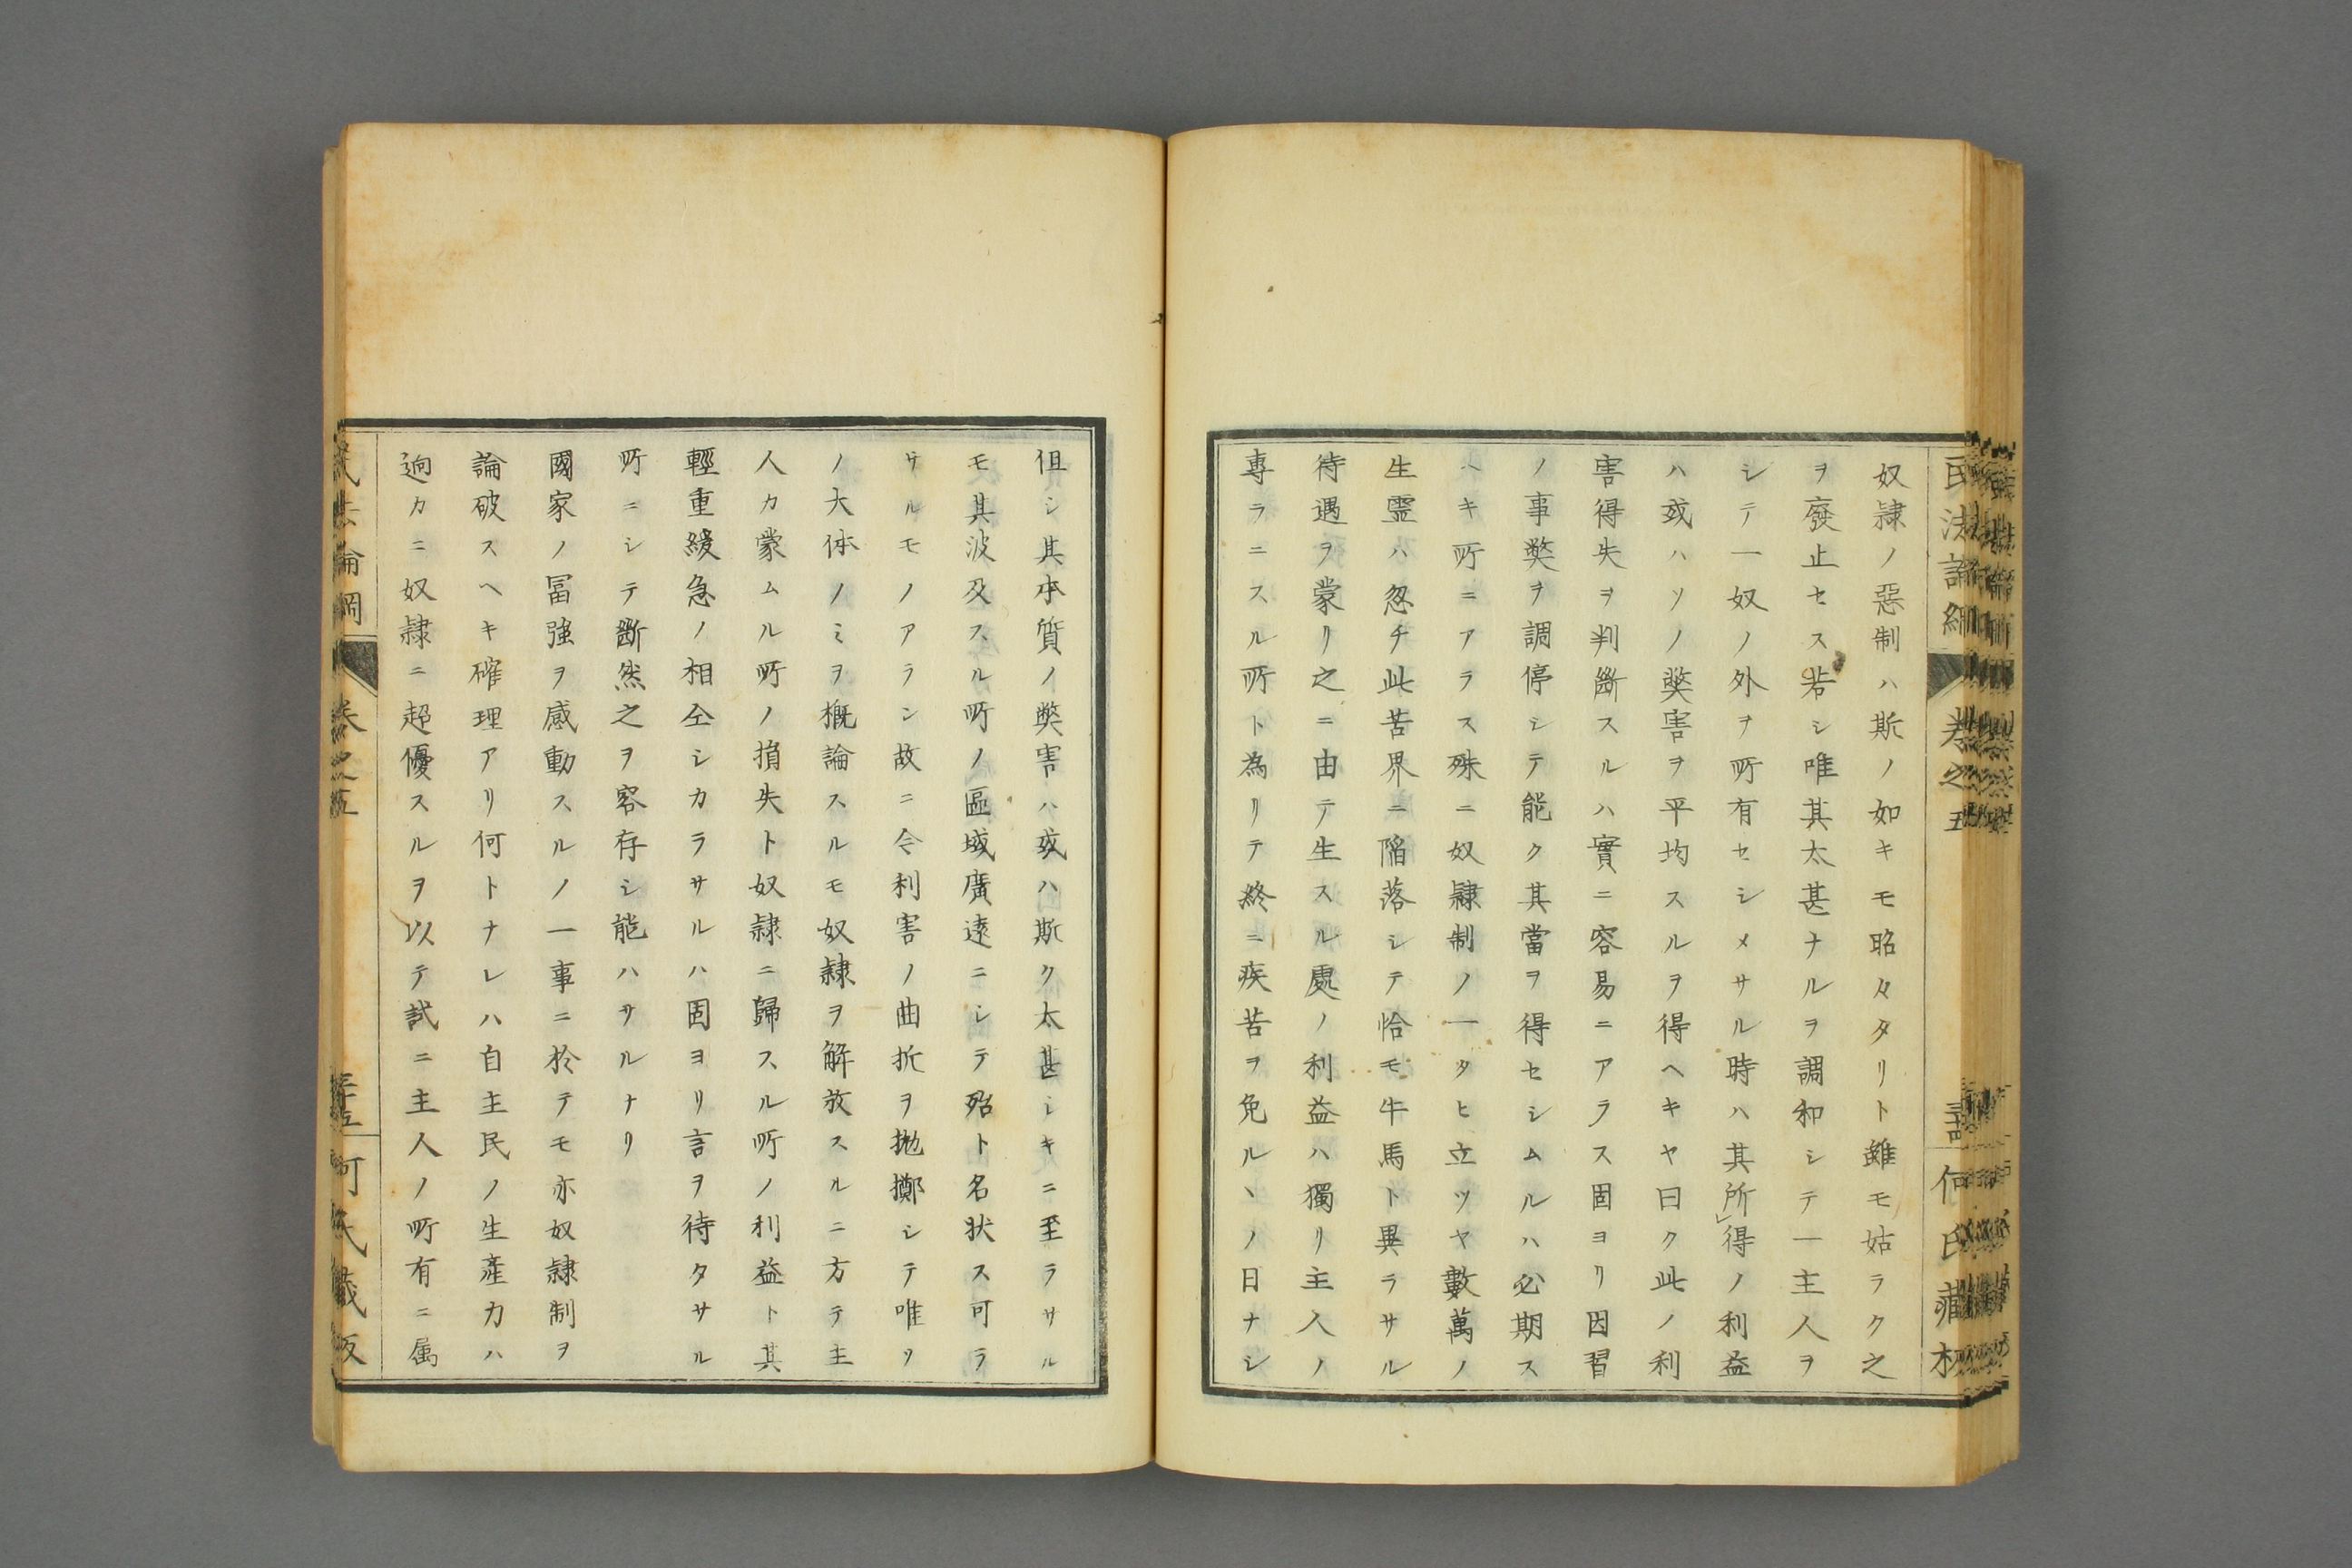 民法論綱 卷之五 何氏藏板
奴隷ノ惡制ハ斯ノ如キモ昭々タリト雖モ姑ラク之
ヲ廢止セス若シ唯其太甚ナルヲ調和シテ一主人ヲ
シテ一奴ノ外ヲ所有セシメサル時ハ其所得ノ利益
ハ或ハソノ獘害ヲ平均スルヲ得ヘキヤ曰ク此ノ利
害得失ヲ判斷スルハ實ニ容易ニアラス固ヨリ因習
ノ事獘ヲ調停シテ能ク其當ヲ得セシムルハ必期ス
ヘキ所ニアラス殊ニ奴隷制ノ一タヒ立ツヤ數萬ノ
生靈ハ忽チ此苦界ニ陥落シテ恰モ牛馬ト異ラサル
待遇ヲ蒙リ之ニ由テ生スル處ノ利益ハ獨リ主人ノ
專ラニスル所ト為リテ終ニ疾苦ヲ免ルヽノ日ナシ
但シ其本質ノ獘害ハ或ハ斯ク太甚シキニ至ラサル
モ其波及スル所ノ區域廣遠ニシテ殆ト名狀ス可ラ
サルモノアラン故ニ今利害ノ曲折ヲ抛擲シテ唯ソ
ノ大体ノミヲ概論スルモ奴隷ヲ解放スルニ方テ主
人カ蒙ムル所ノ損失ト奴隷ニ歸スル所ノ利益ト其
輕重緩急ノ相仝シカラサルハ固ヨリ言ヲ待タサル
所ニシテ斷然之ヲ容存シ能ハサルナリ
國家ノ冨強ヲ感動スルノ一事ニ於テモ亦奴隷制ヲ
論破スヘキ確理アリ何トナレハ自主民ノ生産力ハ
逈カニ奴隷ニ超優スルヲ以テ試ニ主人ノ所有ニ属
民法論綱 卷之五 何氏藏板